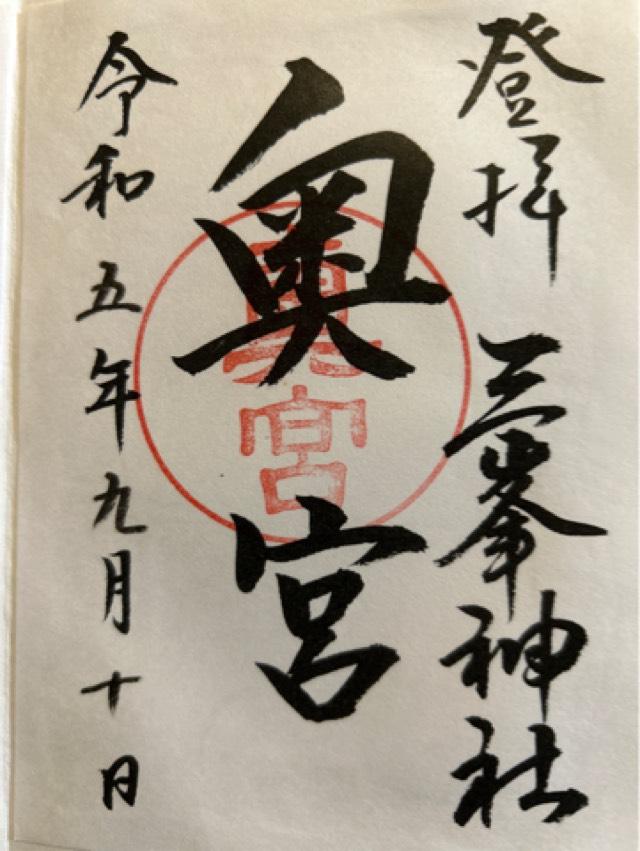 登拝 三峯神社
奥宮
奥宮
令和五年九月十日